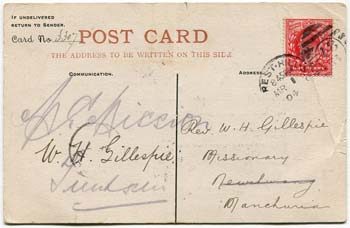 IF UNDELIVERED
RETURN TO SENDER.
Card No. 3307
POST CARD
THE ADDRESS TO BE WRITTEN ON THIS SIDE
COMMUNICATION.
ADDRESS.
W. H. Gillespie
Tientsin
Rev W. H. Gillespie
Missionary
Newchwang
Manchuria